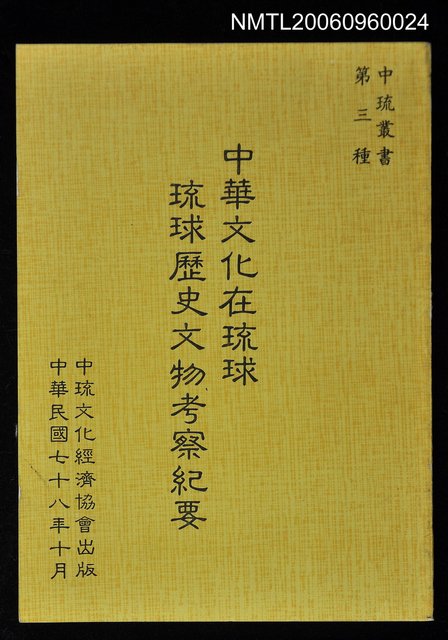 NMTL20060960024
中琉叢書
第三種
中華文化在琉球
琉球歷史文物考察紀要
中琉文化經濟協會出版
中華民國七十八年十月